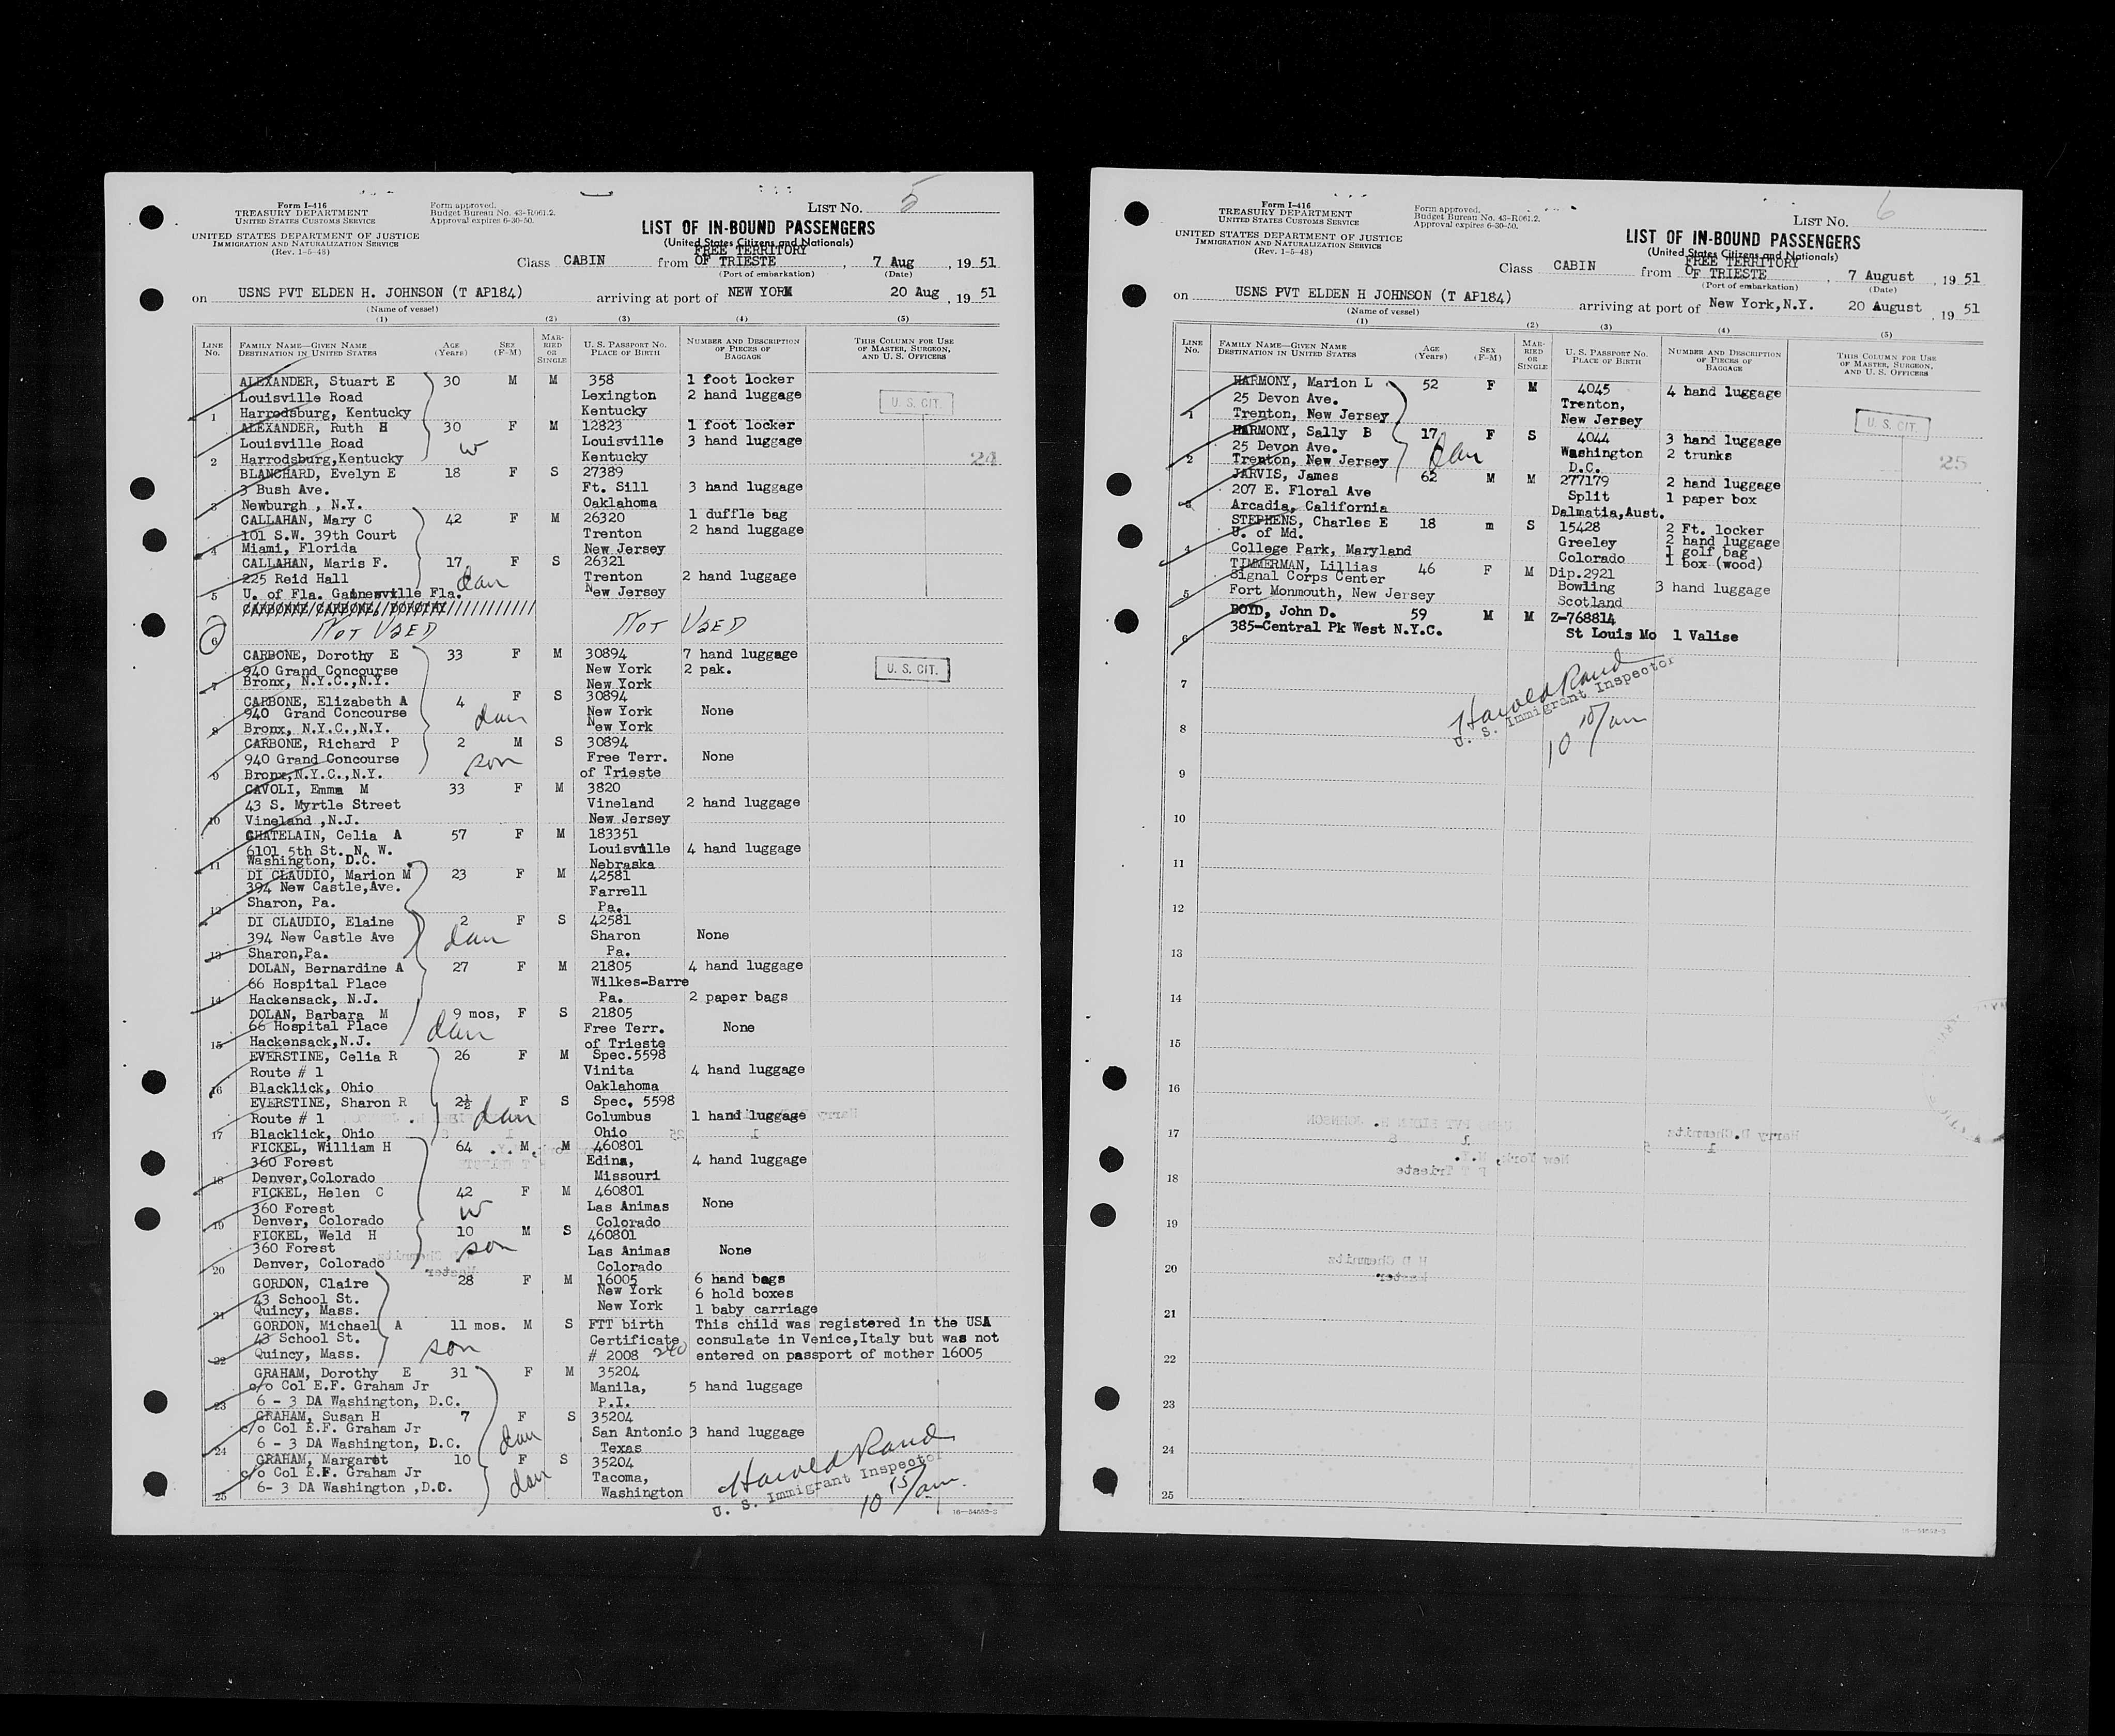 Form I-416
TREASURY DEPARTMENT
UNITED STATES CUSTOMS SERVICE
UNITED STATES DEPARTMENT OF JUSTICE
IMMIGRATION AND NATURALIZATION SERVICE
(Rev. 1-5-48)
Form approved.
Budget Bureau No. 43-R061.2.
Approval expires 6-30-50.
LIST No. 5
LIST OF IN-BOUND PASSENGERS
(United States Citizens and Nationals)
FREE TERRITORY
Class CABIN from OF TRIESTE, 7 Aug, 1951
(Port of embarkation) (Date)
on USNS PVT ELDEN H. JOHNSON (T AP184) arriving at port of NEW YORK 20 Aug, 1951
(Name of vessel)
(1) (2) (3) (4) (5)
LINE No. FAMILY NAME—GIVEN NAME DESTINATION IN UNITED STATES AGE (Years) SEX (F-M) MARRIED OR SINGLE U. S. PASSPORT NO. PLACE OF BIRTH NUMBER AND DESCRIPTION OF PIECES OF BAGGAGE THIS COLUMN FOR USE OF MASTER, SURGEON, AND U. S. OFFICERS
ALEXANDER, Stuart E 30 M M 358 1 foot locker
Louisville Road Lexington 2 hand luggage U. S. CIT.
1 Harrodsburg, Kentucky Kentucky
ALEXANDER, Ruth H 30 F M 12823 1 foot locker
Louisville Road w Louisville 3 hand luggage
2 Harrodsburg,Kentucky Kentucky 24
BLANCHARD, Evelyn E 18 F S 27389
3 Bush Ave. Ft. Sill 3 hand luggage
3 Newburgh , N.Y. Oaklahoma
CALLAHAN, Mary C 42 F M 26320 1 duffle bag
101 S.W. 39th Court Trenton 2 hand luggage
4 Miami, Florida New Jersey
CALLAHAN, Maris F. 17 F S 26321
225 Reid Hall dau Trenton 2 hand luggage
5 U. of Fla. Gainesville Fla. New Jersey
CARBONNE/CARBONE/ DOROTHY///////////
6 NOT USED NOT USED
CARBONE, Dorothy E 33 F M 30894 7 hand luggage
940 Grand Concourse New York 2 pak. U. S. CIT.
7 Bronx, N.Y.C.,N.Y. New York
CARBONE, Elizabeth A 4 F S 30894
940 Grand Concourse dau New York None
8 Bronx, N.Y.C.,N.Y. New York
CARBONE, Richard P 2 M S 30894
940 Grand Concourse son Free Terr. None
9 Bronx,N.Y.C.,N.Y. of Trieste
CAVOLI, Emma M 33 F M 3820
43 S. Myrtle Street Vineland 2 hand luggage
10 Vineland ,N.J. New Jersey
CHATELAIN, Celia A 57 F M 183351
6101 5th St. N. W. Louisville 4 hand luggage
11 Washington, D.C. Nebraska
DI CLAUDIO, Marion M 23 F M 42581
394 New Castle,Ave. Farrell
12 Sharon, Pa. Pa.
DI CLAUDIO, Elaine 2 F S 42581
394 New Castle Ave dau Sharon None
13 Sharon,Pa. Pa.
DOLAN, Bernardine A 27 F M 21805 4 hand luggage
66 Hospital Place Wilkes-Barre
14 Hackensack, N.J. Pa. 2 paper bags
DOLAN, Barbara M 9 mos, F S 21805
66 Hospital Place dau Free Terr. None
15 Hackensack,N.J. of Trieste
EVERSTINE, Celia R 26 F M Spec.5598
Route # 1 Vinita 4 hand luggage
16 Blacklick, Ohio Oaklahoma
EVERSTINE, Sharon R 2½ F S Spec. 5598
Route # 1 dau Columbus 1 hand luggage
17 Blacklick, Ohio Ohio
FICKEL, William H 64 M M 460801
360 Forest Edina, 4 hand luggage
18 Denver,Colorado Missouri
FICKEL, Helen C 42 F M 460801
360 Forest w Las Animas None
19 Denver, Colorado Colorado
FICKEL, Weld H 10 M S 460801
360 Forest son Las Animas None
20 Denver, Colorado Colorado
GORDON, Claire 28 F M 16005 6 hand bags
43 School St. New York 6 hold boxes
21 Quincy, Mass. New York 1 baby carriage
GORDON, Michael A 11 mos. M S FTT birth This child was registered in the USA
43 School St. Certificate consulate in Venice,Italy but was not
22 Quincy, Mass. son # 2008 240 entered on passport of mother 16005
GRAHAM, Dorothy E 31 F M 35204
c/o Col E.F. Graham Jr Manila, 5 hand luggage
23 6 - 3 DA Washington, D.C. P.I.
GRAHAM, Susan H 7 F S 35204
c/o Col E.F. Graham Jr dau San Antonio 3 hand luggage
24 6 - 3 DA Washington, D.C. Texas
GRAHAM, Margaret 10 F S 35204
c/o Col E.F. Graham Jr dau Tacoma,
25 6- 3 DA Washington ,D.C. Washington
Harold Rand
U. S. Immigrant Inspector
10 15/am.
16—54652-3
Form I-416
TREASURY DEPARTMENT
UNITED STATES CUSTOMS SERVICE
UNITED STATES DEPARTMENT OF JUSTICE
IMMIGRATION AND NATURALIZATION SERVICE
(Rev. 1-5-48)
Form approved.
Budget Bureau No. 43-R061.2.
Approval expires 6-30-50.
LIST No. 6
LIST OF IN-BOUND PASSENGERS
(United States Citizens and Nationals)
FREE TERRITORY
Class CABIN from OF TRIESTE, 7 August, 1951
(Port of embarkation) (Date)
on USNS PVT ELDEN H JOHNSON (T AP184) arriving at port of New York,N.Y. 20 August, 1951
(Name of vessel)
(1) (2) (3) (4) (5)
LINE No. FAMILY NAME—GIVEN NAME DESTINATION IN UNITED STATES AGE (Years) SEX (F-M) MARRIED OR SINGLE U. S. PASSPORT NO. PLACE OF BIRTH NUMBER AND DESCRIPTION OF PIECES OF BAGGAGE THIS COLUMN FOR USE OF MASTER, SURGEON, AND U. S. OFFICERS
HARMONY, Marion L 52 F M 4045 4 hand luggage
25 Devon Ave. Trenton,
1 Trenton, New Jersey New Jersey U. S. CIT.
HARMONY, Sally B 17 F S 4044 3 hand luggage
25 Devon Ave. dau Washington 2 trunks
2 Trenton, New Jersey D.C. 25
JARVIS, James 62 M M 277179 2 hand luggage
207 E. Floral Ave Split 1 paper box
3 Arcadia, California Dalmatia,Aust.
STEPHENS, Charles E 18 m S 15428 2 Ft. locker
U. of Md. Greeley 2 hand luggage
4 College Park, Maryland Colorado 1 golf bag
1 box (wood)
TIMMERMAN, Lillias 46 F M Dip.2921
Signal Corps Center Bowling 3 hand luggage
5 Fort Monmouth, New Jersey Scotland
BOYD, John D. 59 M M Z-768814
385-Central Pk West N.Y.C. St Louis Mo 1 Valise
6
7
Harold Rand
U. S. Immigrant Inspector
10 15/am
8
9
10
11
12
13
14
15
16
17
18
19
20
21
22
23
24
25
16—54652-3